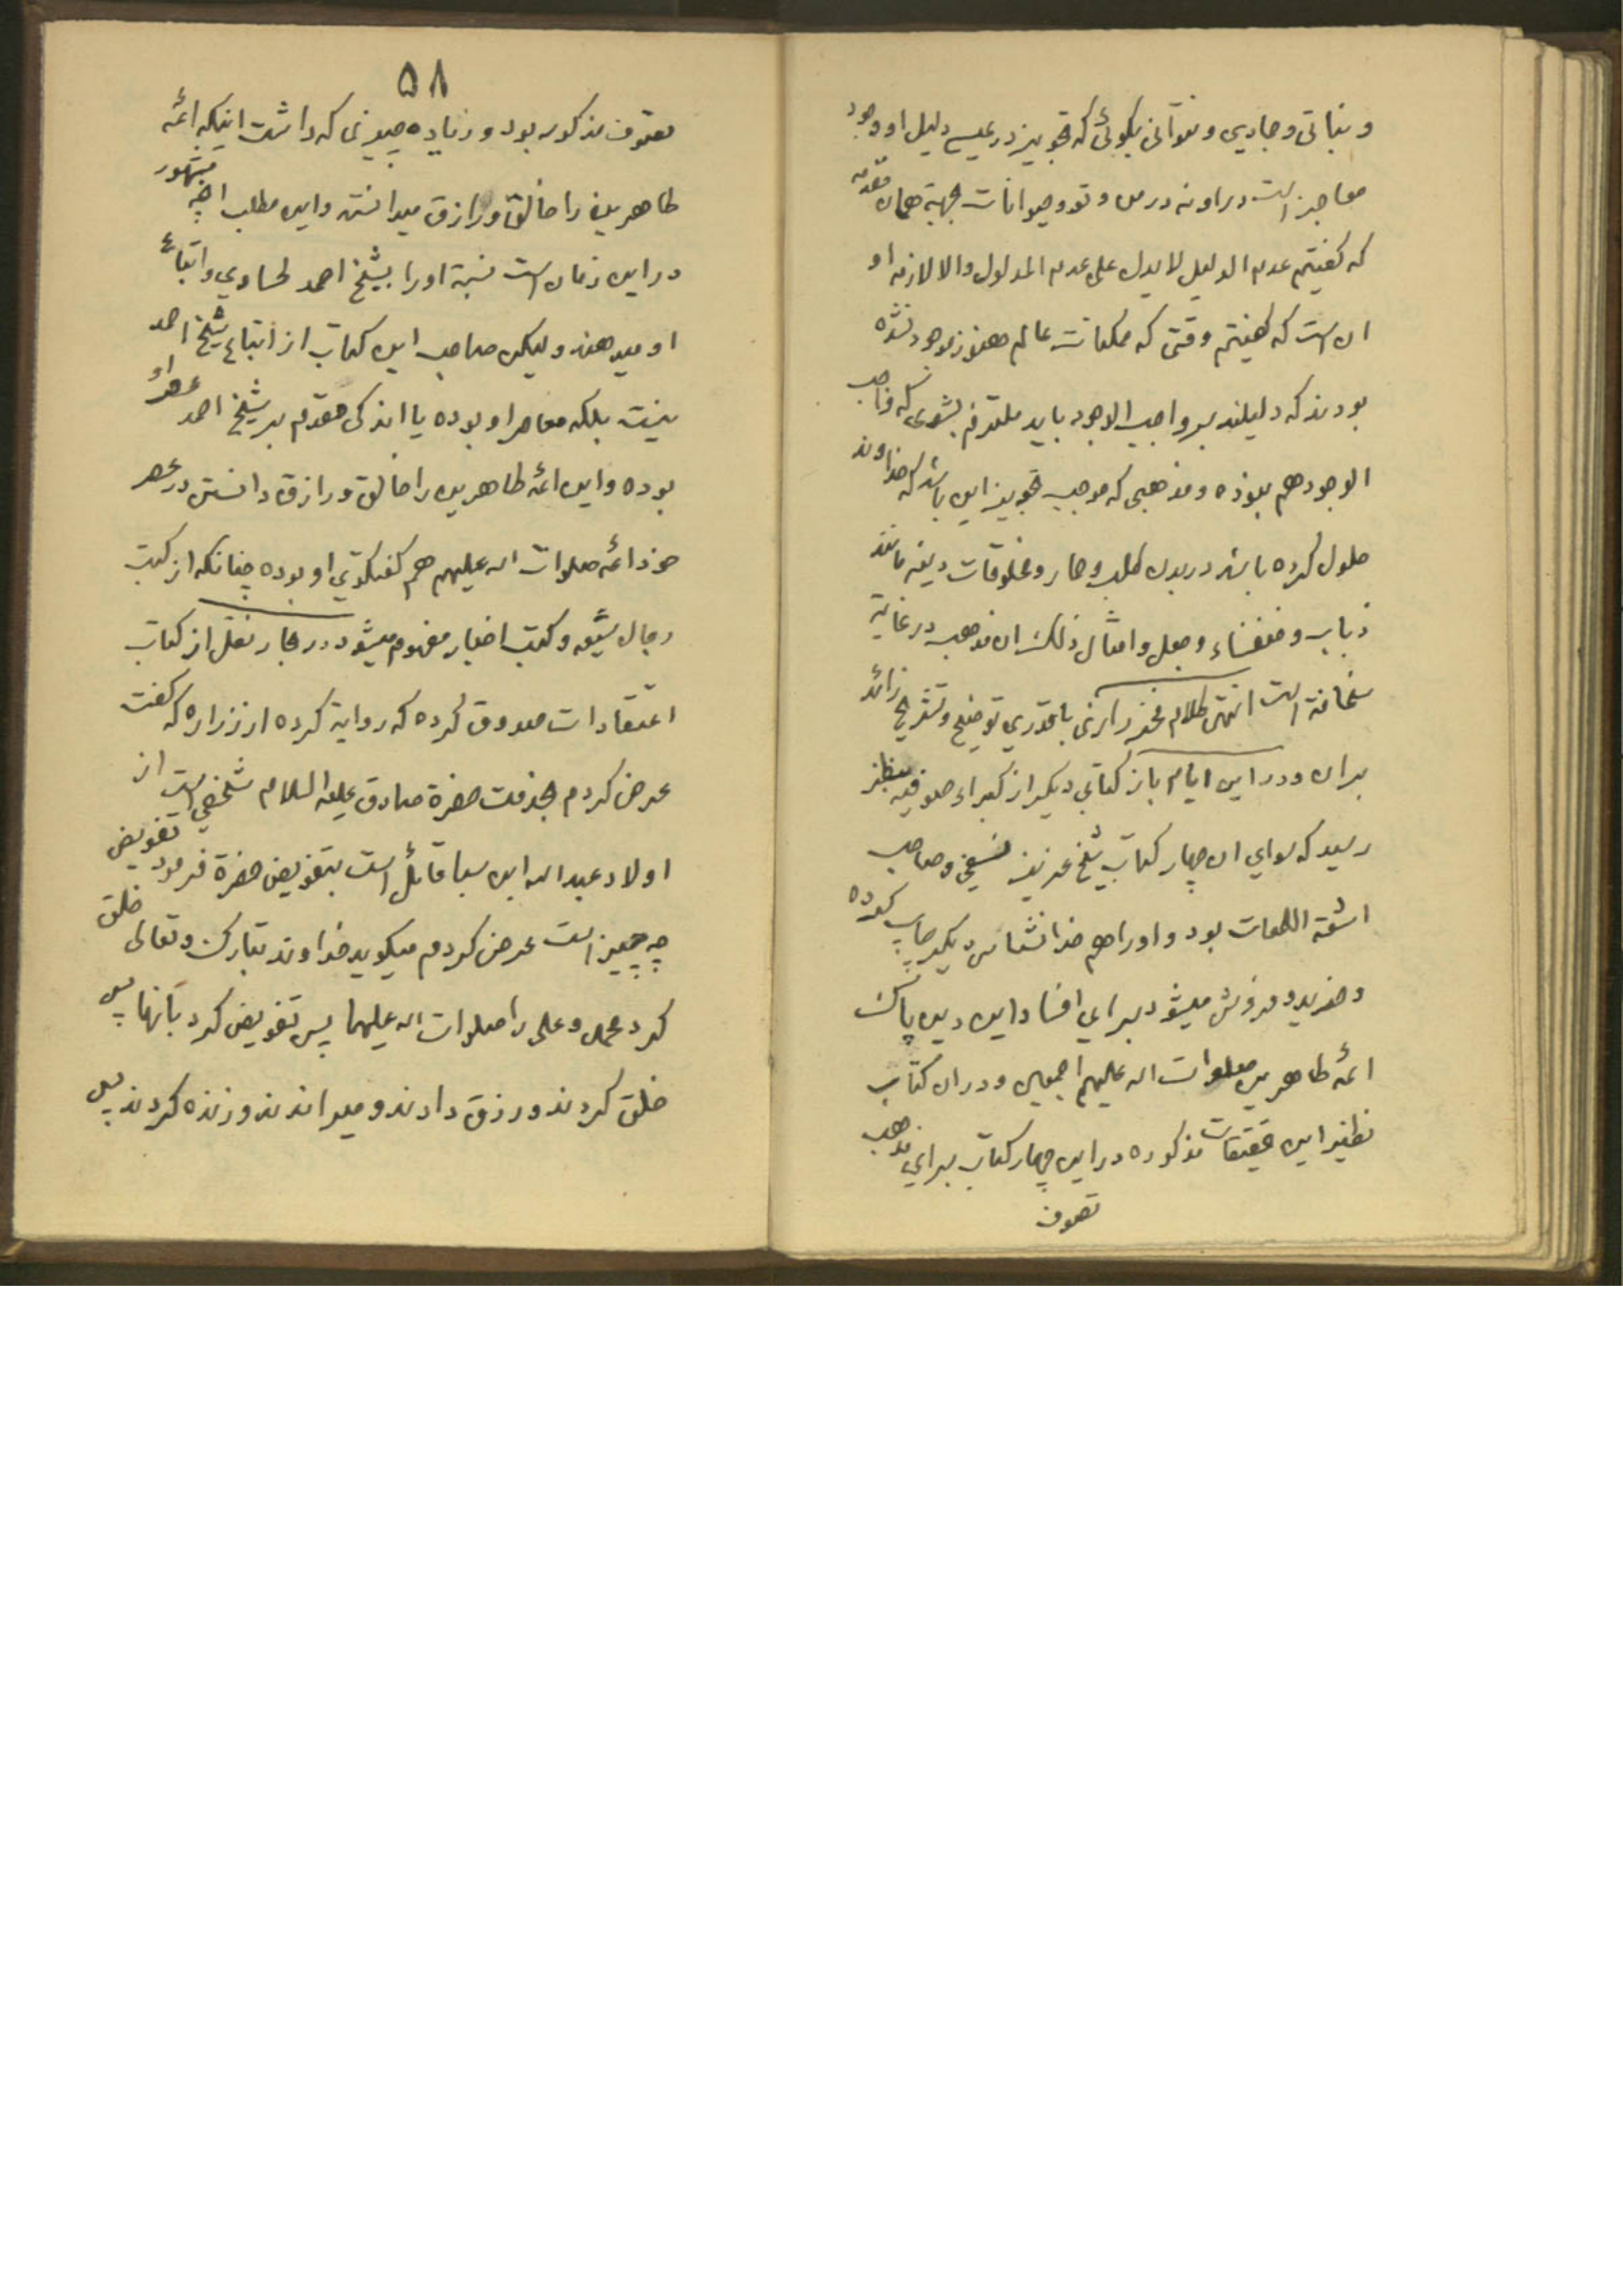 و نباتی و جمادی و نتوانی بگوئی که تجویز در عیسی دلیل او وجود
معاجز است در او نه در من و تو و حیوانات بجهة همان مقدمه
که گفتیم عدم الدلیل لا یدل علی عدم المدلول والا لازمه او
ان است که گفتیم وقتی که ممکنات عالم هنوز موجود نشده
بودند که دلیلند بر واجب الوجود باید ملتزم بشوی که واجب
الوجود هم نبوده و مذهبی که موجب تجویز این باشد که خداوند
حلول کرده باشد در بدن کلب و حمار و مخلوقات دیگر مانند
ذباب و خنفساء و جعل و امثال ذلک ان مذهب در غایة
سخافة است انتهی کلام فخر رازی با قدری توضیح و تشریح زائد
بران و در این ایام باز کتابی دیگر از کبراء صوفیه بنظر
رسید که سوای ان چهار کتاب شیخ عزیز نسفی و صاحب
اشعة اللمعات بود و او را هم خدانشناس دیگر چاپ کرده
و خرید و فروش میشود برای افساد این دین پاک
ائمه طاهرین صلوات اله علیهم اجمعین و در ان کتاب
نظیر این تحقیقات مذکوره در این چهار کتاب برای مذهب
تصوف
۵۸
تصوف مذکور بود و زیاده چیزی که داشت اینکه ائمه
طاهرین را خالق و رازق میدانسته و این مطلب اگرچه مشهور
در این زمان است نسبة او را بشیخ احمد لحساوی و اتباع
او میدهند ولیکن صاحب این کتاب از اتباع شیخ احمد
نیست بلکه معاصر او بوده یا اندکی مقدم بر شیخ احمد و عصر او
بوده و این ائمه طاهرین را خالق و رازق دانستن در عصر
خود ائمه صلوات اله علیهم هم گفتگوی او بوده چنانکه از کتب
رجال شیعه و کتب اخبار مفهوم میشود در بحار نقل از کتاب
اعتقادات صدوق کرده که روایة کرده از زراره که گفت
عرض کردم بخدمت حضرة صادق علیه السلام شخصی است از
اولاد عبد اله ابن سبا قائل است بتفویض حضرة فرمود تفویض
چه چیز است عرض کردم میگوید خداوند تبارک و تعالی خلق
کرد محمد و علی را صلوات اله علیهما پس تفویض کرد بآنها پس
خلق کردند و رزق دادند و میراندند و زنده کردند پس